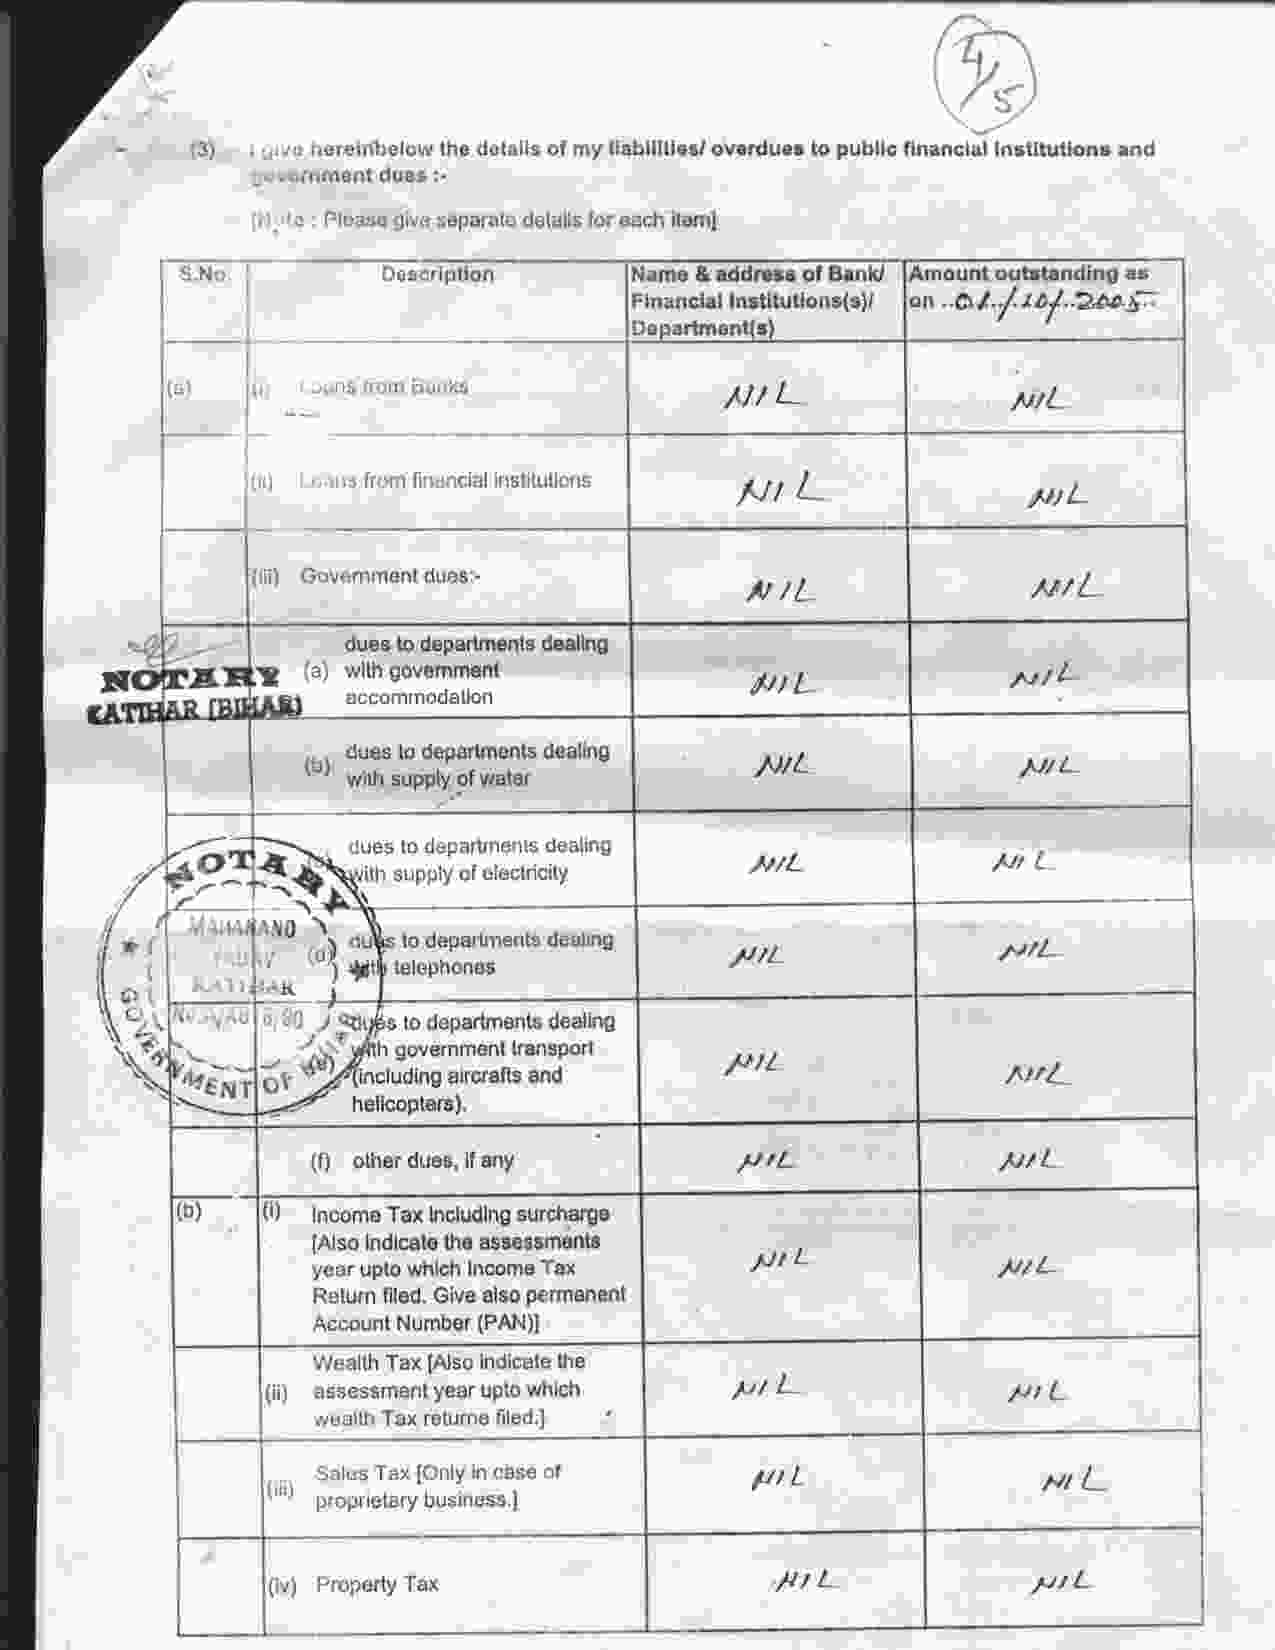 4/5
(3) I give hereinbelow the details of my liabilities/ overdues to public financial institutions and
government dues :-
[Note : Please give separate details for each item]
S.No. Description Name & address of Bank/ Amount outstanding as
Financial Institutions(s)/ on ..01./.10/..2005..
Department(s)
(a) (i) Loans from Banks NIL NIL
(ii) Loans from financial institutions NIL NIL
(iii) Government dues:- NIL NIL
dues to departments dealing
NOTARY (a) with government NIL NIL
KATIHAR [BIHAR) accommodation
dues to departments dealing
(b) with supply of water NIL NIL
dues to departments dealing
with supply of electricity NIL NIL
NOTARY
GOVERNMENT OF BIHAR
KATIHAR
dues to departments dealing
(d) with telephones NIL NIL
dues to departments dealing
(e) with government transport NIL NIL
(including aircrafts and
helicopters).
(f) other dues, if any NIL NIL
(b) (i) Income Tax including surcharge
[Also indicate the assessments
year upto which Income Tax NIL NIL
Return filed. Give also permanent
Account Number (PAN)]
Wealth Tax [Also indicate the
(ii) assessment year upto which NIL NIL
wealth Tax returne filed.]
Sales Tax [Only in case of
(iii) proprietary business.] NIL NIL
(iv) Property Tax NIL NIL